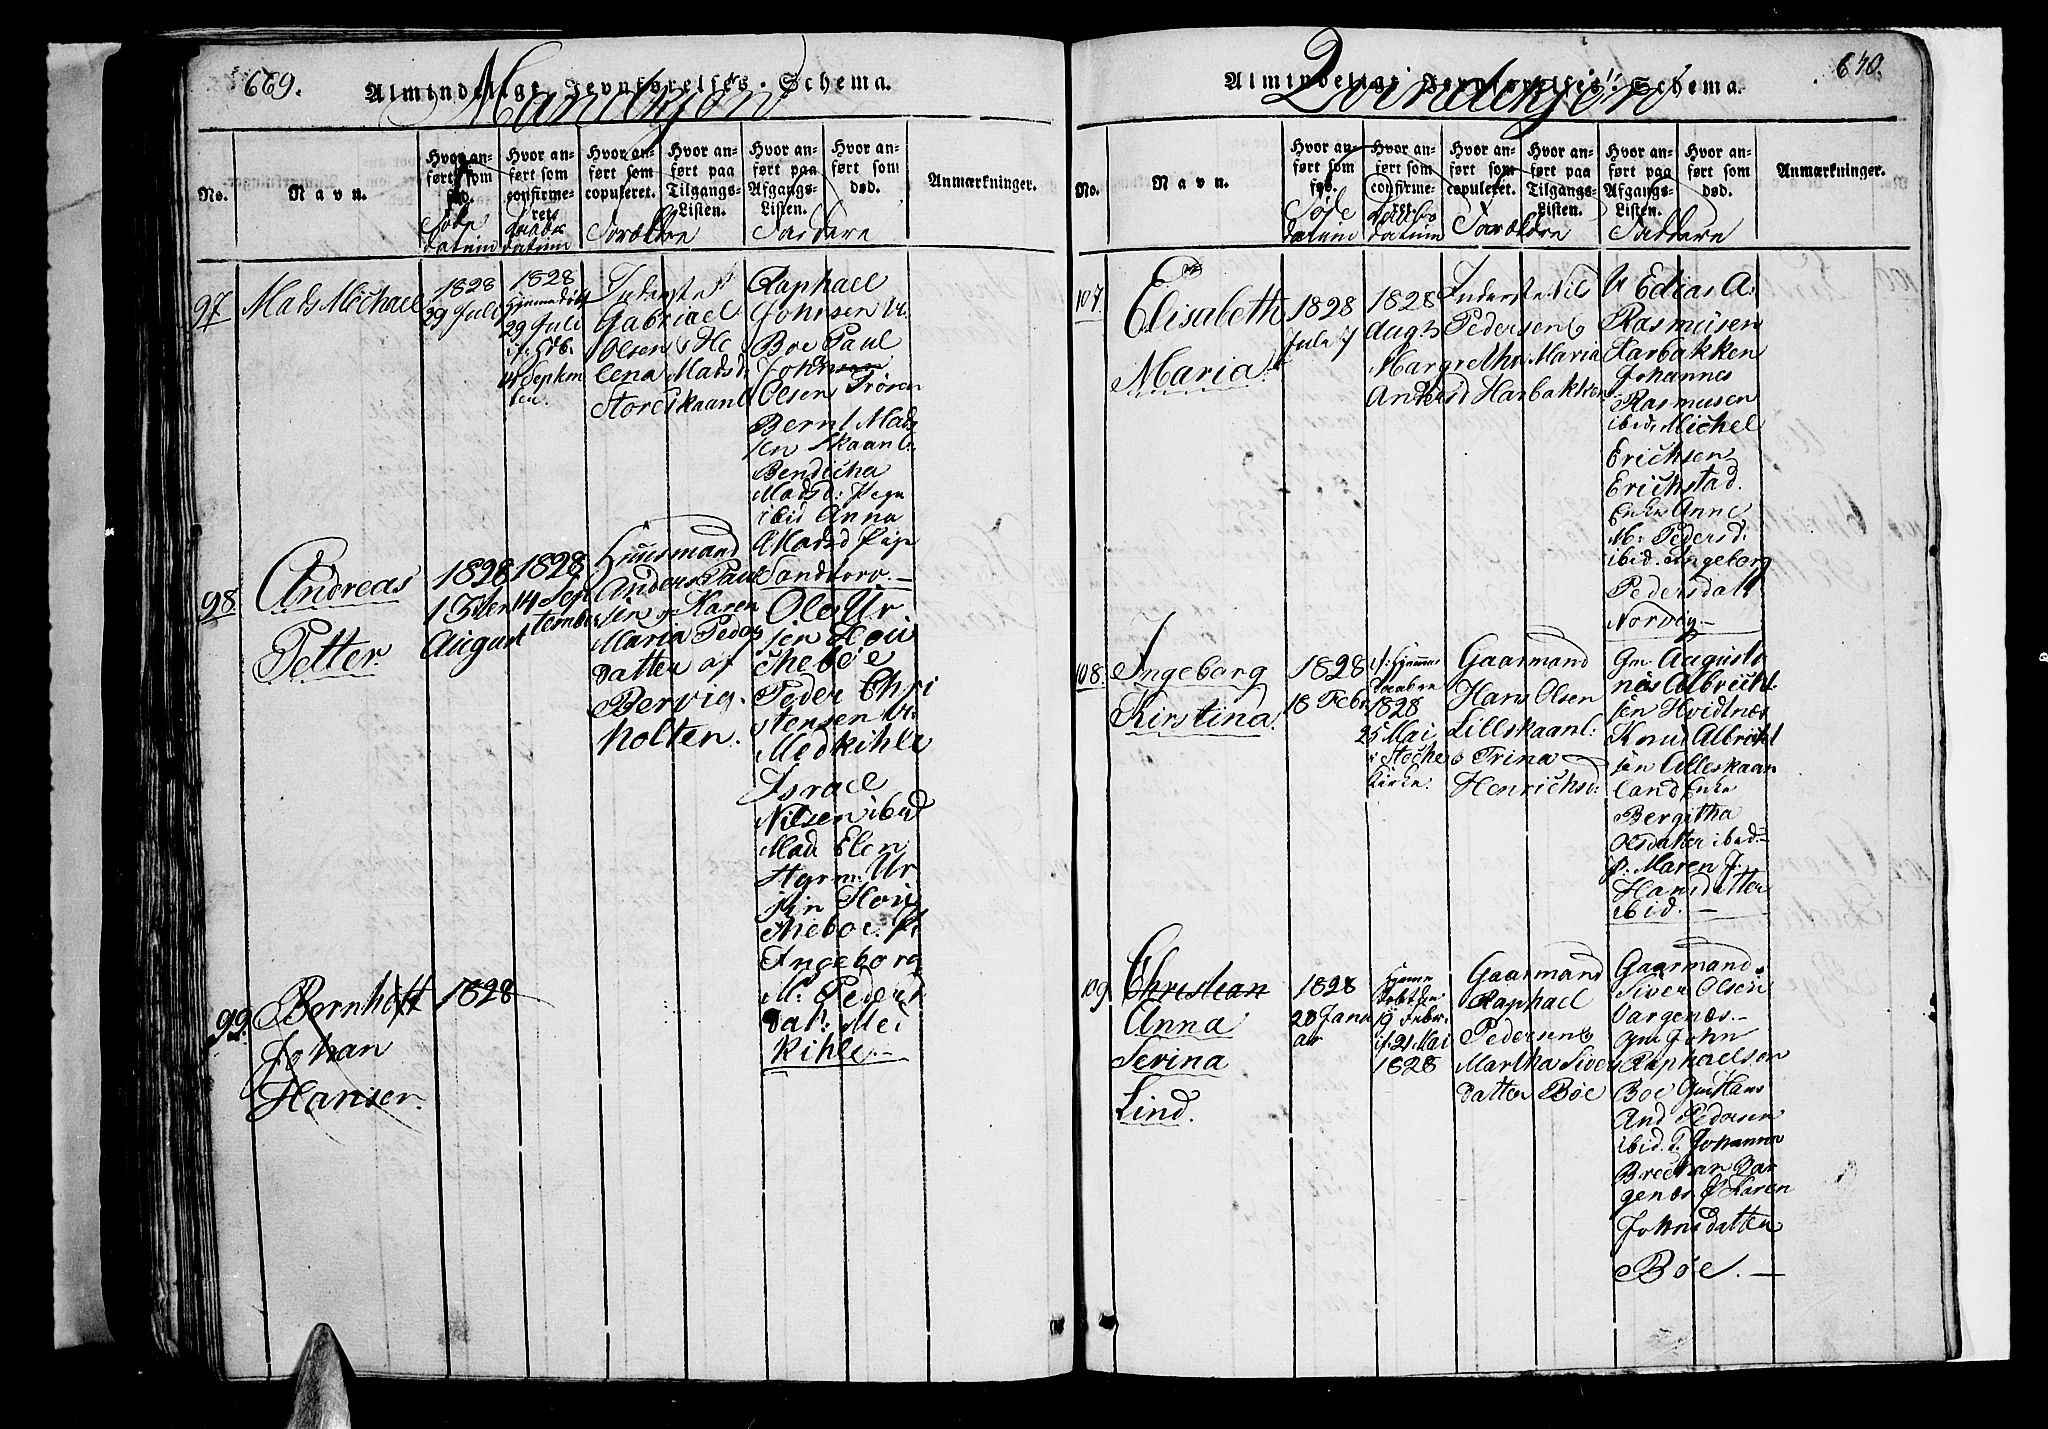 669.
Almindelige Jevnførelses-Schema.
Mandkjøn
No.
Navn.
Hvor anført som fød.
Hvor anført som confirmeret.
Hvor anført som copuleret.
Hvor anført paa Tilgangs-Listen.
Hvor anført paa Afgangs-Listen.
Hvor anført som død.
Anmærkninger.
Føde
datum
Daabs
datum
Forældre
Faddere
97
Mads Michael
1828
29 Juli
1828
Hjemmedøbt
29 Juli
Inderste
Gabriel
Olsen & He
lena Madsd:
Storeskaanl
Raphael
Johnsen
Boe Paul
Johnsen
Olsen
Bernt Mads
sen Skaanl.
Bendicha
Madsd: Pige
ibid Anna
Madsd Pige
Sandtorv. —
98.
Andreas
Petter.
1828
13den
August
1828
14 Sep
tember
Huusmand
Anders Paul
sen & Karen
Maria Peders
datter af
Bervig
holten.
Ole Ur
sin
Peder Chri
stensen
Medkihle
Israel
Nilsen ibid
Mad Elen
Ur
sin
Ingeborg
M. Peders
dat: Med
kihle. —
99.
Bernhoft
Johan
Hansen.
1828
670.
Almindelige Jevnførelses-Schema.
Qvindekjøn
No.
Navn.
Hvor anført som fød.
Hvor anført som confirmeret.
Hvor anført som copuleret.
Hvor anført paa Tilgangs-Listen.
Hvor anført paa Afgangs-Listen.
Hvor anført som død.
Anmærkninger.
Føde
datum
Daabs
datum
Forældre
Faddere
107.
Elisabeth
Maria.
1828
1828
Inderste Nils
Pedersen &
Margrethe Maria
Andersd Harbakken
Edias A.
Rasmusen
Harbakken
Johannes
Rasmusen
ibid. Michel
Erichsen
Erichstad.
Enke Anne
M: Pedersd:
ibid. Ingeborg
Pedersdatt
Norvig. —
108.
Ingeborg
Kirstina.
1828
18 Febr
1828
25 Mai
i
Kirke.
Gaarmand
Hans Olsen
Lilleskaanl:
& Trina
Henrichsd:
Gm. Augusti
nus Albricht
sen Hvidtnæs
Knud Albricht
sen Lilleskaan
land Enke
Bergitha
Olsdatter ibid —
p. Maren J:
Hansdatter
ibid. —
109
Christian
Anna
Serina
Lind.
1828
20 Janu
ar
Hjemme
døbt den
19 Febr.
21 Mai
1828
Gaarmand
Raphael
Pedersen &
Martha Sivers
datter Böe
Gaarmand
Siver Olsen
Vargenæs. —
Gm John
Raphaelsen
Boe Gm Hans
And Pedersen
ibid. P. Johanna
Brechan Var
genæs & Karen
Johnsdatter
Böe. —